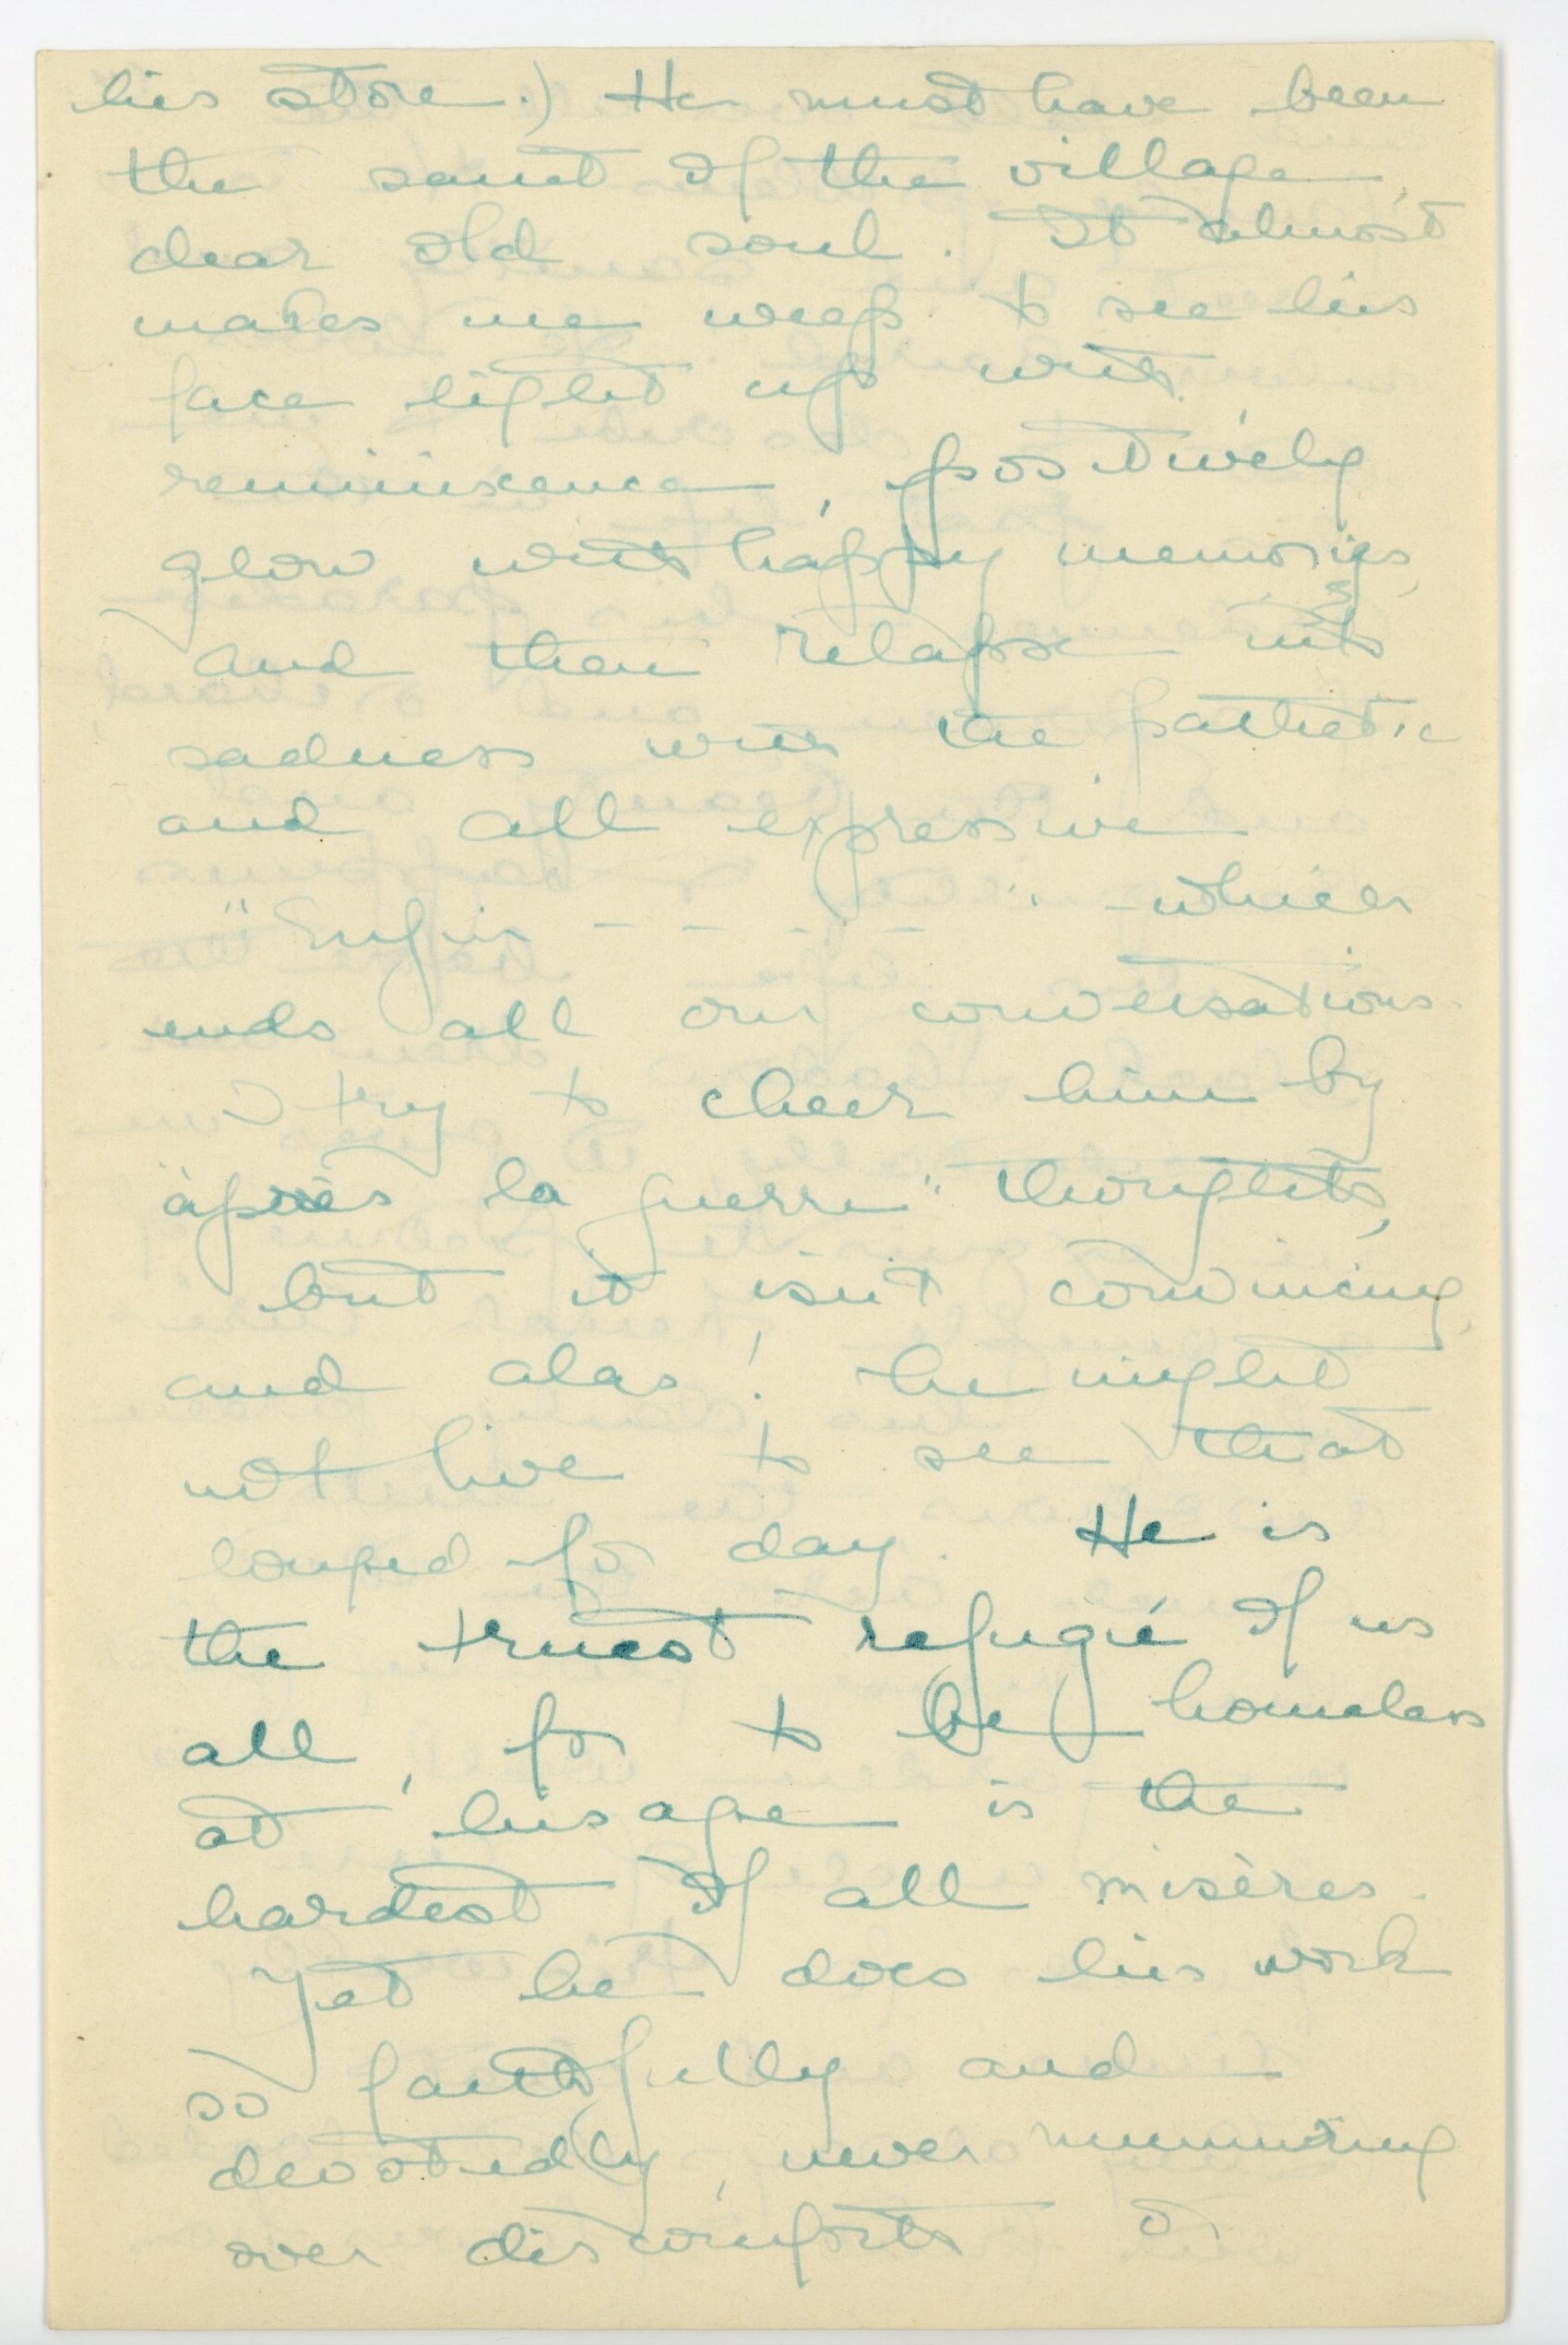 his store.) He must have been
the saint of the village,
dear old soul. It almost
makes me weep to see his
face light up with
reminiscence, positively
glow with happy memories,
and then relapse into
sadness with the pathetic
and all expressive
"Enfin - - - - - " which
ends all our conversations.
I try to cheer him by
"après la guerre" thoughts,
but it isn't convincing,
and alas! he might
not live to see that
longed for day. He is
the truest refugié of us
all, for to be homeless
at his age is the
hardest of all misères.
Yet he does his work
so faithfully and
devotedly, never murmuring
over discomforts or